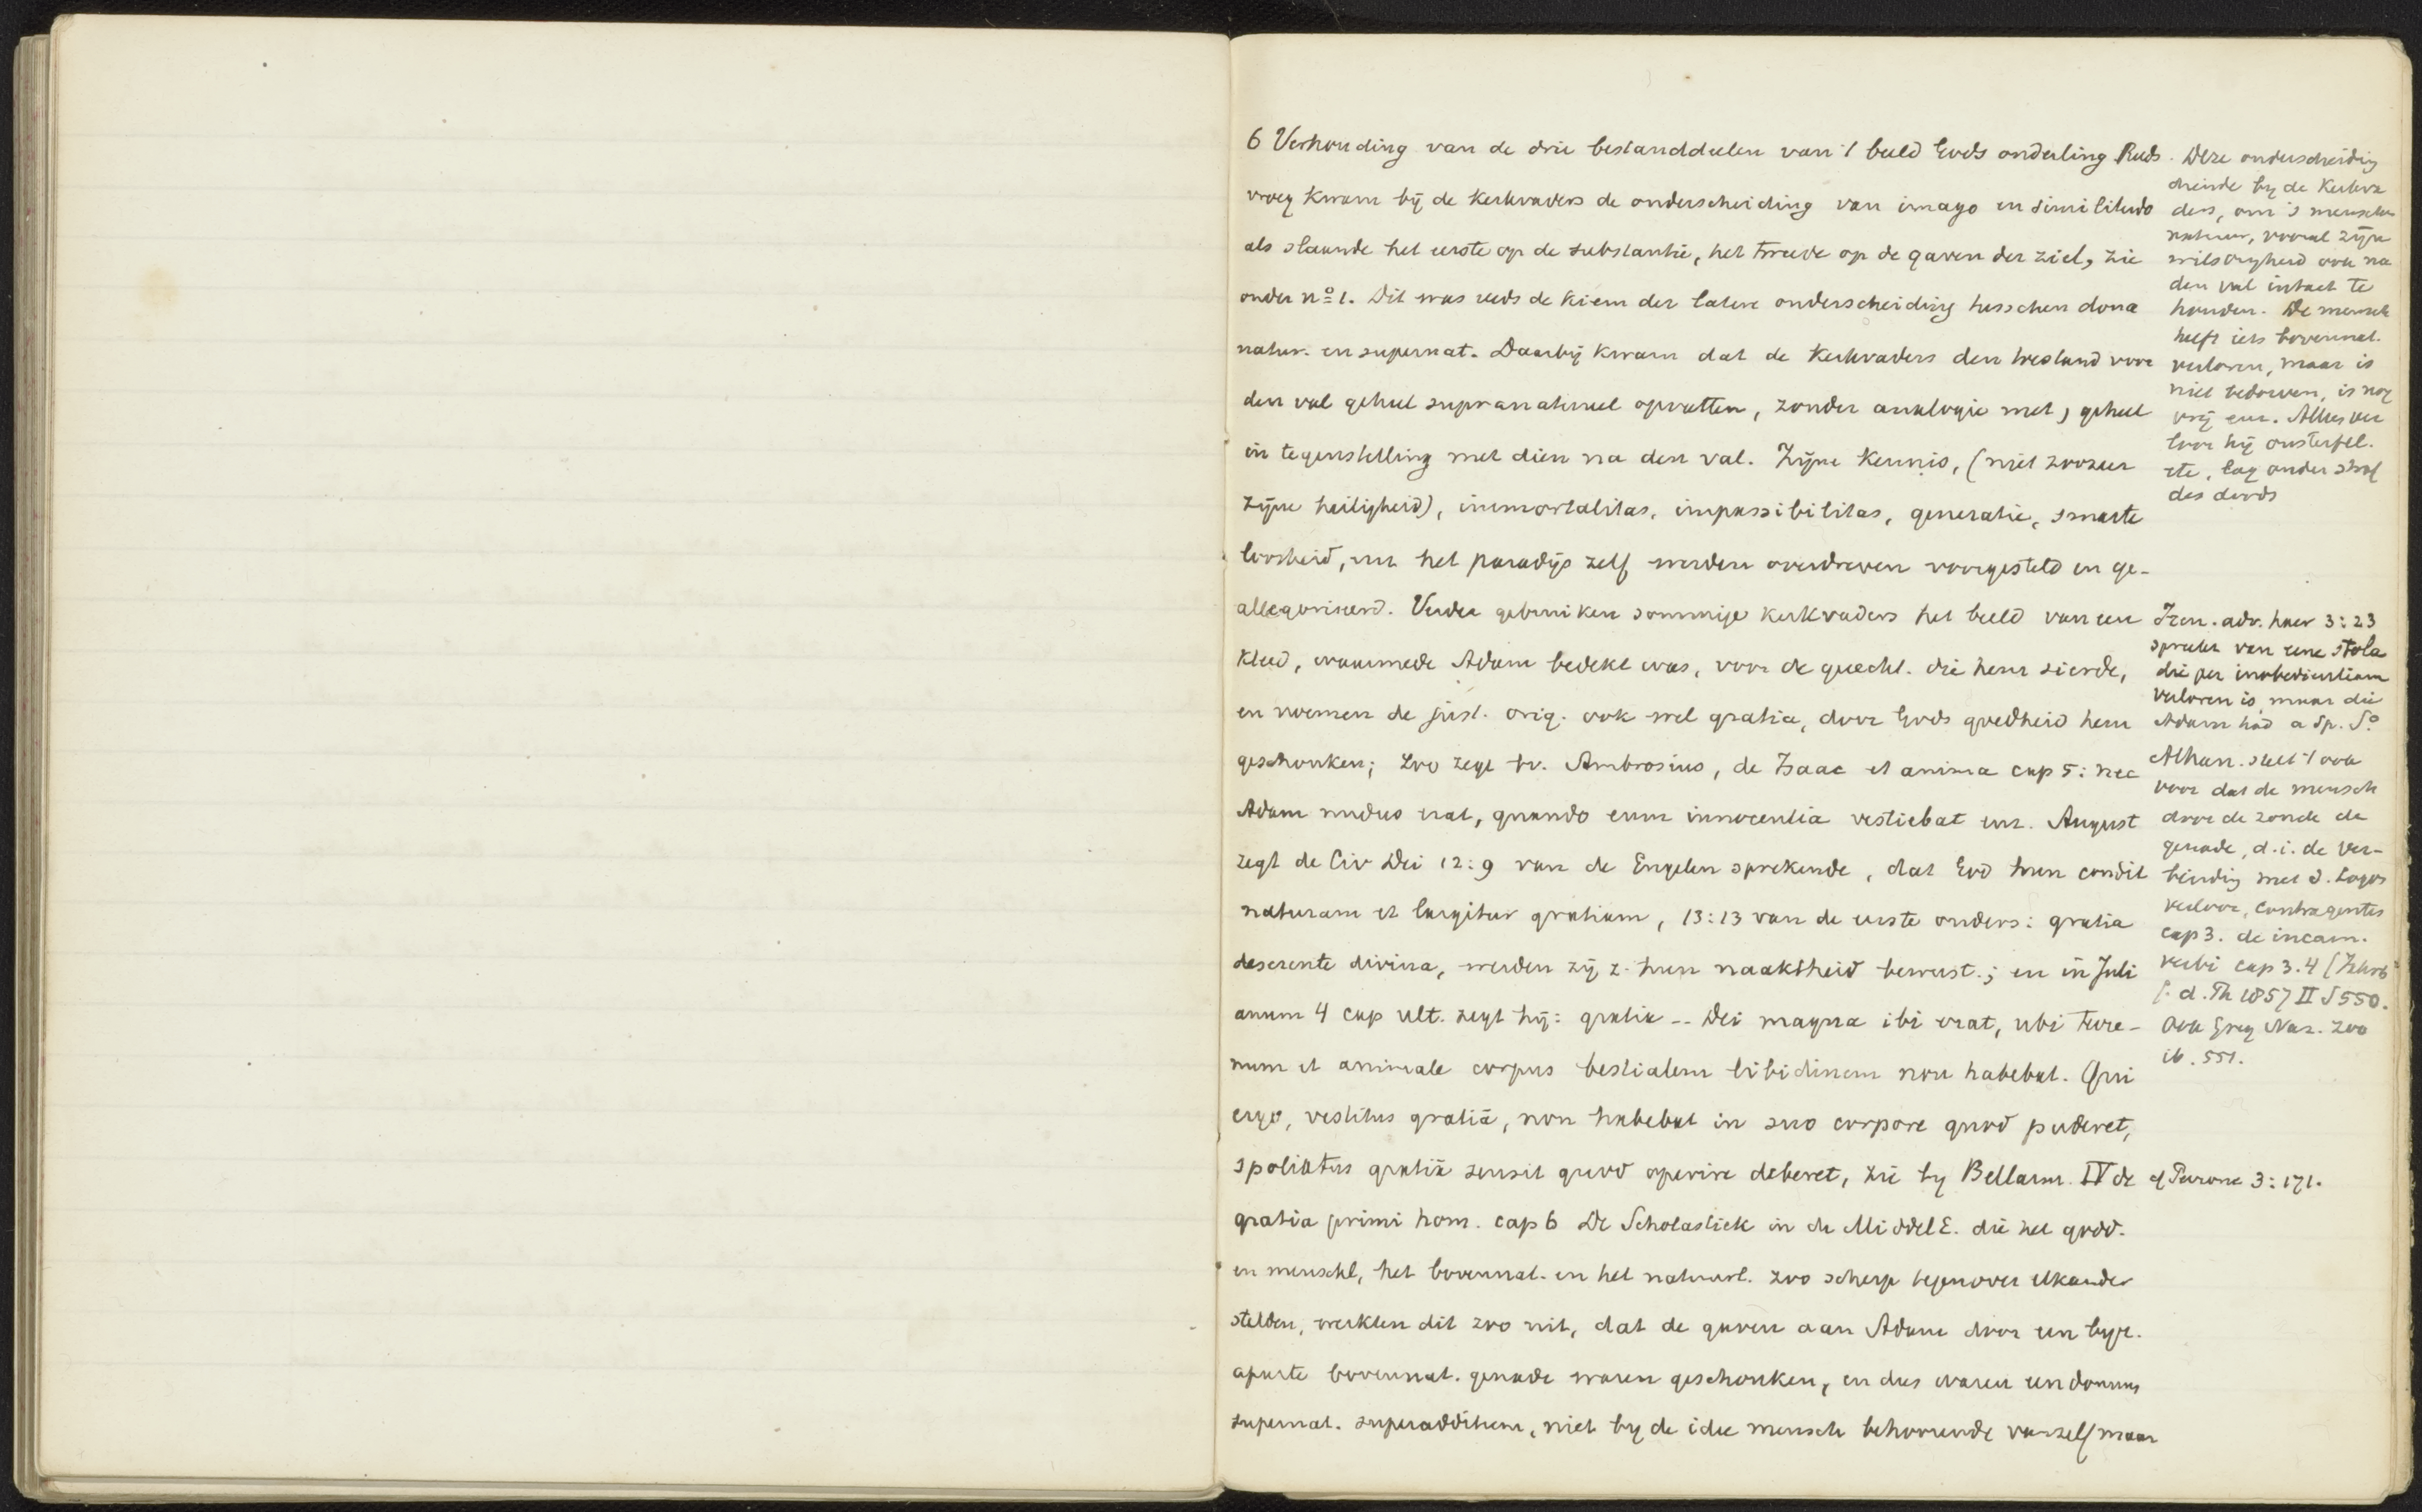 6 Verhouding van de drie bestanddeelen van 't beeld Gods onderling Reeds
vroeg kwam bij de Kerkvaders de onderscheiding van imago en similitudo
als slaande het eerste op de substantie, het tweede op de gaven der ziel, zie
onder nº 1. Dit was reeds de kiem der latere onderscheiding tusschen dona
natur. en supernat. Daarbij kwam dat de Kerkvaders den toestand voor
den val geheel supranatureel opvatten, zonder analogie met, geheel
in tegenstelling met dien na den val. Zijne kennis, (niet zoozeer
zijne heiligheid), immortalitas, impassibilitas, generatie, smarte
loosheid, en het paradijs zelf werden overdreven voorgesteld en ge-
allegoriseerd. Verder gebruiken sommige kerkvaders het beeld van een
kleed, waarmede Adam bedekt was, voor de gerecht. die hem sierde,
en noemen de just. orig. ook wel gratia, door Gods goedheid hem
geschonken; Zoo zegt bv. Ambrosius, de Isaac et anima cap 5: nec
Adam nudus erat, quando eum innocentia vestiebat enz. August
zegt de Civ Dei 12:9 van de Engelen sprekende, dat God hun condit
naturam et largitur gratiam, 13:13 van de eerste ouders: gratia
deserente divina, werden zij z. hun naaktheid bewust.; en in Juli
anum 4 cap ult. zegt hij: gratia -- Dei magna ibi erat, ubi terre-
num et animale corpus bestialem libidinem non habebat. Qui
ergo, vestitus gratiâ, non habebat in suo corpore quod puderet,
spoliatus gratiâ sensit quod operire deberet, zie by Bellarm. IV de
gratia primi hom. cap 6 De Scholastiek in de MiddelE. die het godd.
en menschl, het bovennat. en het natuurl. zoo scherp tegenover elkander
stelden, werkten dit zoo uit, dat de gaven aan Adam door een byz.
aparte bovennat. genade waren geschonken, en dus waren een donum
supernat. superadditum, niet by de idee mensch behoorende vanzelf maar
Deze onderscheidig
diende by de Kerkva
ders, om 's menschen
natuur, vooral zijn
wilsvryheid ook na
den val intact te
houden. De mensch
heeft iets bovennat.
verloren, maar is
niet bedorven, is nog
vrij enz. Alles ver
loor hij onsterfel.
ete, lag onder straf
des doods
Iren. adv. haer 3:23
spreekt van eene stola
die per inobedientiam
verloren is, maar die
Adam had a Sp. Sº
Athan. stelt 't ook
voor dat de mensch
door de zonde de
genade, d.i. de ver-
bindig met d. Logos
verloor, contra gentes
cap 3. de incarn.
verbi cap 3.4 (Jahrb
f. d. Th 1857 II S 550.
Ook Greg Naz. zoo
ib. 551.
cf Perrone 3:171.